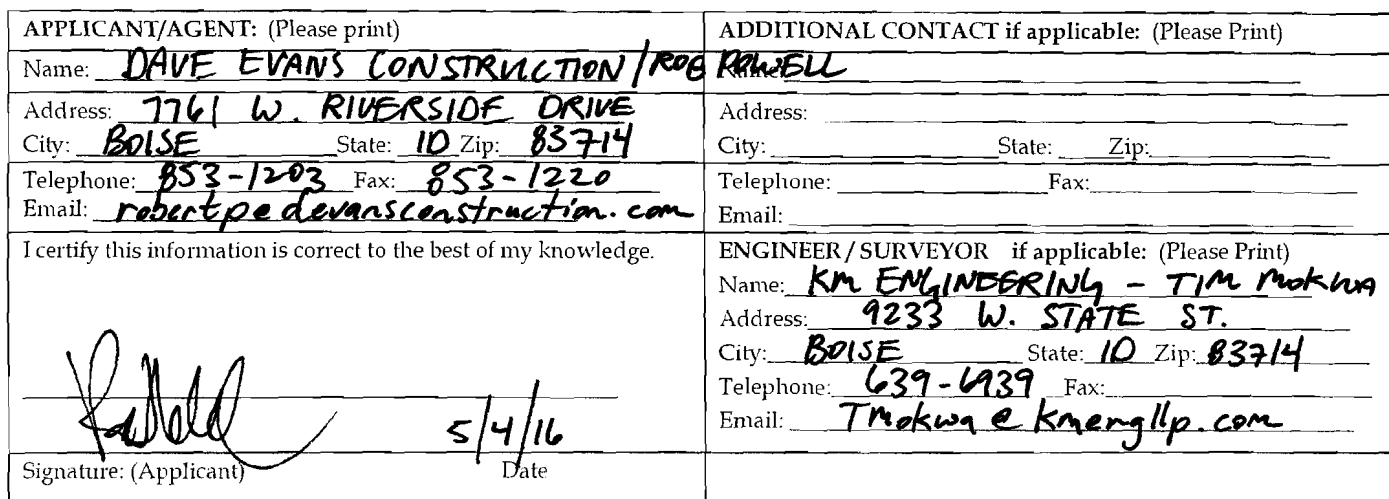 APPLICANT/AGENT: (Please print)
Name: DAVE EVANS CONSTRUCTION / ROB POWELL
Address: 7761 W. RIVERSIDE DRIVE
City: BOISE State: ID Zip: 83714
Telephone: 853-1203 Fax: 853-1220
Email: robertp@devansconstruction.com
I certify this information is correct to the best of my knowledge.
5/4/16
Signature: (Applicant) Date
ADDITIONAL CONTACT if applicable: (Please Print)
Address:
City: State: Zip:
Telephone: Fax:
Email:
ENGINEER / SURVEYOR if applicable: (Please Print)
Name: KM ENGINEERING - TIM MOKWA
Address: 9233 W. STATE ST.
City: BOISE State: ID Zip: 83714
Telephone: 639-6939 Fax:
Email: Tmokwa@kmengllp.com